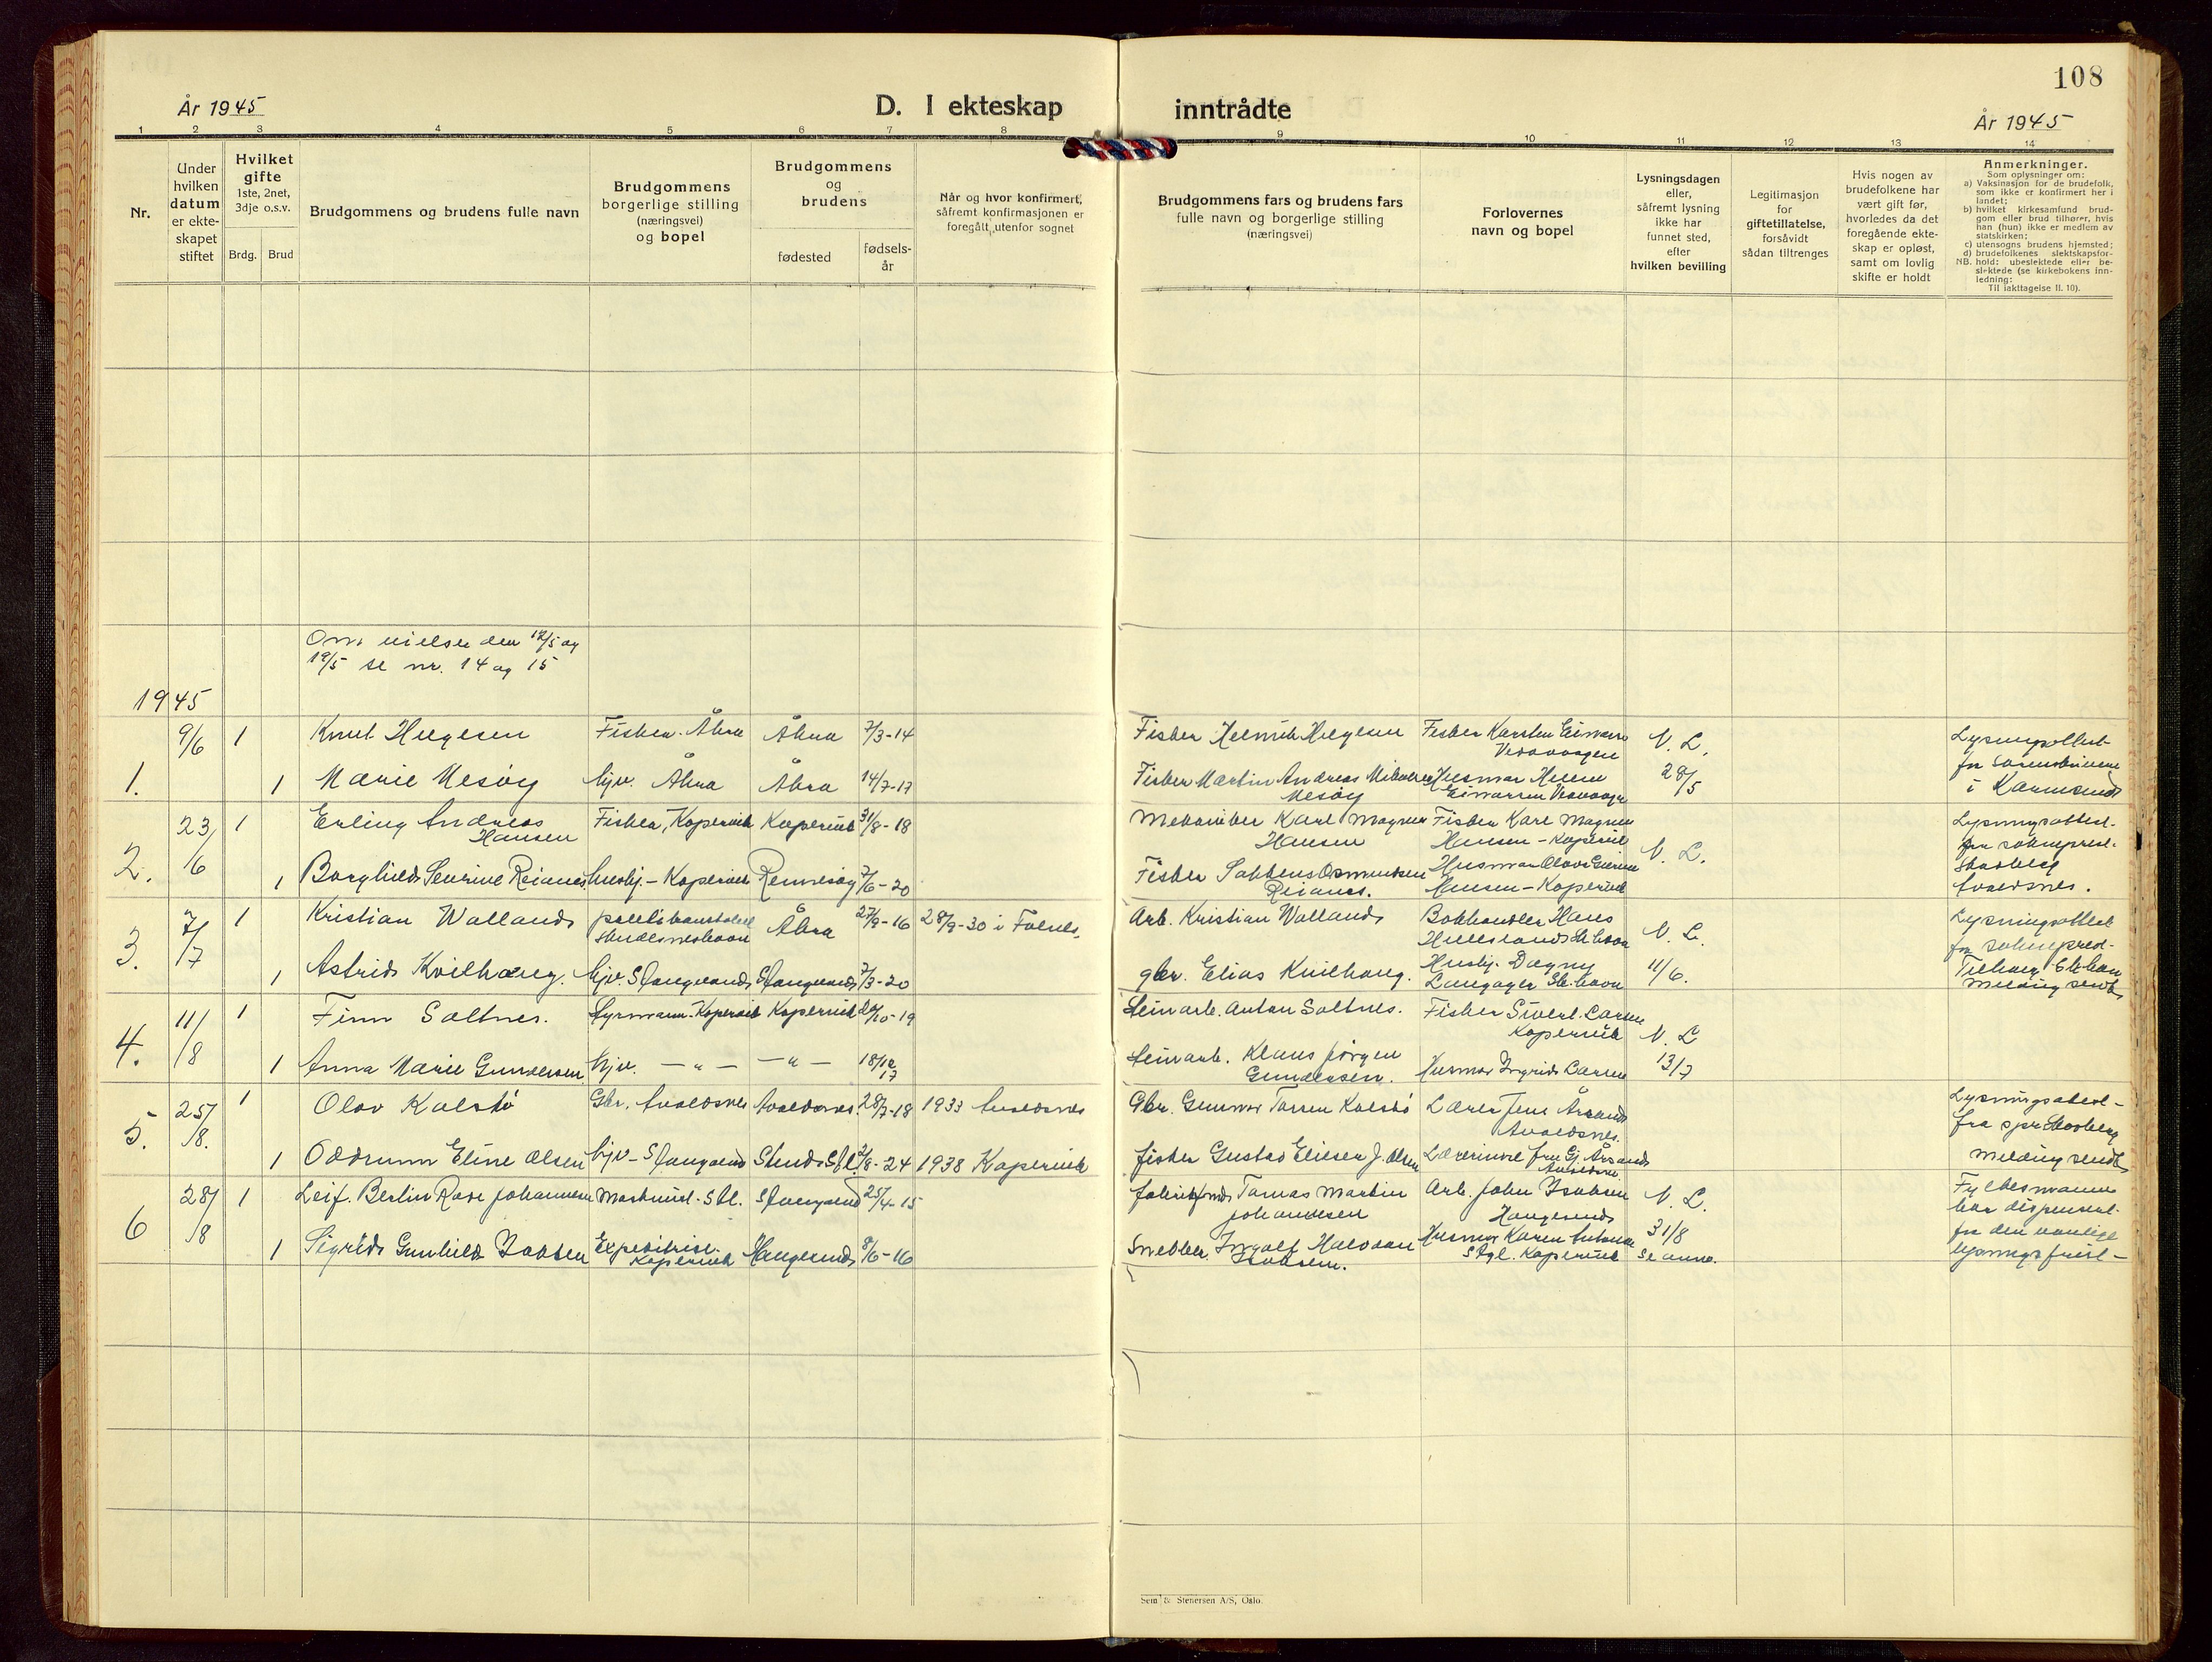 108
År 1945
D. I ekteskap inntrådte
År 1945
1 2 3 4 5 6 7 8 9 10 11 12 13 14
Nr.
Under
hvilken
datum
er ekte-
skapet
stiftet
Hvilket
gifte
1ste, 2net,
3dje o.s.v.
Brdg. Brud
Brudgommens og brudens fulle navn
Brudgommens
borgerlige stilling
(næringsvei)
og bopel
Brudgommens
og
brudens
fødested
fødsels-
år
Når og hvor konfirmert,
såfremt konfirmasjonen er
foregått utenfor sognet
Brudgommens fars og brudens fars
fulle navn og borgerlige stilling
(næringsvei)
Forlovernes
navn og bopel
Lysningsdagen
eller,
såfremt lysning
ikke har
funnet sted,
efter
hvilken bevilling
Legitimasjon
for
giftetillatelse,
forsåvidt
sådan tiltrenges
Hvis nogen av
brudefolkene har
vært gift før,
hvorledes da det
foregående ekte-
skap er opløst,
samt om lovlig
skifte er holdt
Anmerkninger.
Som oplysninger om:
a) Vaksinasjon for de brudefolk,
som ikke er konfirmert her i
landet;
b) hvilket kirkesamfund brud-
gom eller brud tilhører, hvis
han (hun) ikke er medlem av
statskirken;
c) utensogns brudens hjemsted;
d) brudefolkenes slektskapsfor-
NB. hold: ubeslektede eller be-
slektede (se kirkebokens inn-
ledning:
Til iakttagelse II. 10).
Om vielser den 12/5 og
19/5 se nr. 14 og 15
1945
1.
9/6 1 Knut Hegesen Fisker. Åkra Åkra 7/3-14
Fisker Helmik Hegesen Fisker Karsten
N. L.
Lysningsattest
fra
i Karmsund
1 Marie Mesøy hjv. Åkra Åkra 14/7-17
Fisker Martin Andreas
Mesøy
29/5
2.
23/6 1 Erling Andreas
Hansen
Fisker, Kopervik Kopervik 31/8-18
Karl Magnus
Hansen
Fisker Kare Magnus
Hansen - Kopervik
N. L.
Lysningsattest-
fra sokneprest.
Skadberg
Avaldsnes.
1 Borghild Sevrine Reianes husbj.- Kopervik Rennesøy 7/6-20
Fisker
Reianes.
Hansen - Kopervik
3.
7/7 1 Kristian Walland politikonstabel
Skudesneshavn
Åkra 27/9-16 28/9-30 i
Arb. Kristian Walland Bokhandler Hans
N. L.
Lysningsattest
fra sokneprest-
melding sendt
1 Astrid Kvilhaug. hjv. Stangeland Stangeland 7/3-20
gbr. Elias Kvilhaug. Husbj. Dagny
Langager Sk.havn
11/6.
4.
11/8 1 Finn Saltnes. Styrmann-Kopervik Kopervik /10-19
Steinarb. Anton Saltnes. Fisker Sivert Larsen
Kopervik
N. L
1 Anna Marie Gundersen hjv. — " — — " — 18/12 17
Steinarb. Klaus Jørgen
Gundersen.
Husmor Ingrid Larsen
13/7
5.
25/8. 1 Olav Kalstø Gbr. Avaldsnes Avaldsnes. 28/7-18 1933 Avaldsnes
Gbr. Gunnar Kalstø Lærer Jens Årsand
Avaldsnes.
Lysningsattest-
fra spr Skadberg
melding sendt
1 Oddrunn Eline Olsen hjv - Stangeland /8-24 1938 Kopervik
fisker Gustav Eliesen J. Olsen fru Gj Årsand
Avaldsnes
6
28/8 1 Leif. Berlin Rove Johannesen Maskinist. Stl. Stangeland 25/4-15
Tomas Martin
Johannesen
Arb. John Isaksen
Haugesund
N. L.
Fylkesmannen
har dispensert
fra den vanlige
lysningsfrist-
1 Sigrid Gunhild Isaksen Expeditrise
Kopervik
Haugesund 9/6-16
Snekker. Ingolf Halvdan
Isaksen.
Husmor Karen
Stgl. Kopervik
31/8
Se anm.
Sem & Stenersen A/S, Oslo.